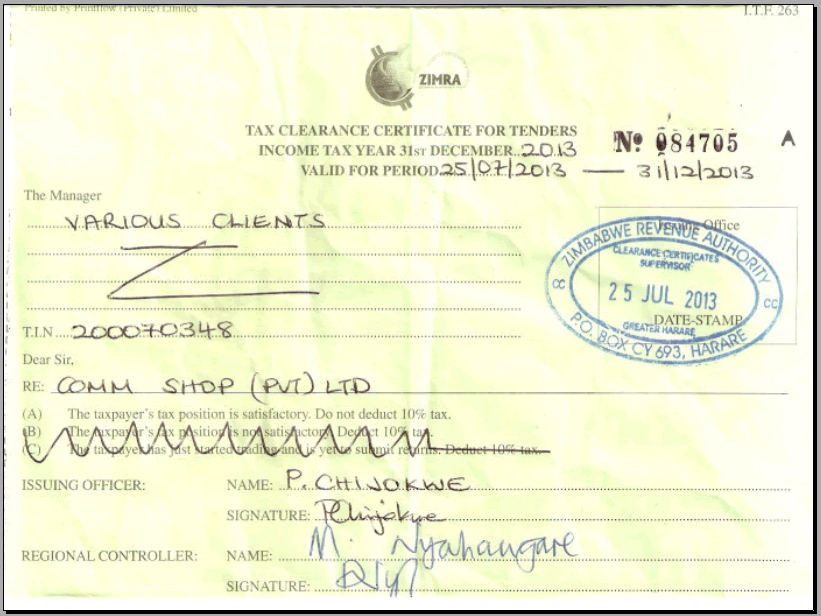 Printed by Printflow (Private) Limited
I.T.F. 263
ZIMRA
TAX CLEARANCE CERTIFICATE FOR TENDERS
INCOME TAX YEAR 31ST DECEMBER 2013
VALID FOR PERIOD 25/07/2013 — 31/12/2013
No 084705 A
The Manager
VARIOUS CLIENTS
Issuing Office
ZIMBABWE REVENUE AUTHORITY
CLEARANCE CERTIFICATES
SUPERVISOR
CC 25 JUL 2013 CC
DATE-STAMP
GREATER HARARE
P.O. BOX CY 693, HARARE
T.I.N 200070348
Dear Sir,
RE: COMM SHOP (PVT) LTD
(A) The taxpayer's tax position is satisfactory. Do not deduct 10% tax.
(B) The taxpayer's tax position is not satisfactory. Deduct 10% tax.
(C) The taxpayer has just started trading and is yet to submit returns. Deduct 10% tax.
ISSUING OFFICER: NAME: P. CHIJOKWE
SIGNATURE: PChijokwe
REGIONAL CONTROLLER: NAME: M. Nyahangare
SIGNATURE: